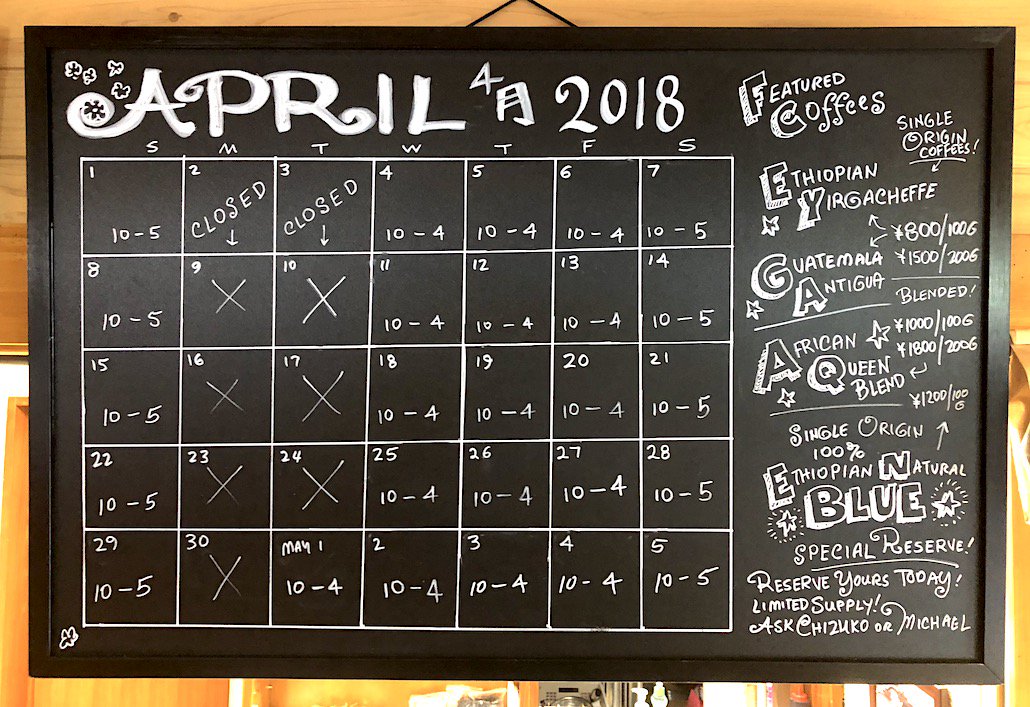 APRIL 4月 2018
S M T W T F S
1 2 3 4 5 6 7
CLOSED CLOSED
10-5 10-4 10-4 10-4 10-5
8 9 10 11 12 13 14
10-5 10-4 10-4 10-4 10-5
15 16 17 18 19 20 21
10-5 10-4 10-4 10-4 10-5
22 23 24 25 26 27 28
10-5 10-4 10-4 10-4 10-5
29 30 MAY 1 2 3 4 5
10-5 10-4 10-4 10-4 10-4 10-5
FEATURED
COFFEES
SINGLE
ORIGIN
COFFEES!
ETHIOPIAN
YIRGACHEFFE
¥800/100G
¥1500/200G
GUATEMALA
ANTIGUA
BLENDED!
AFRICAN
QUEEN
BLEND
¥1000/100G
¥1800/200G
¥1200/100
G
SINGLE ORIGIN
100%
ETHIOPIAN NATURAL
BLUE
SPECIAL RESERVE!
RESERVE YOURS TODAY!
LIMITED SUPPLY!
ASK CHIZUKO OR MICHAEL